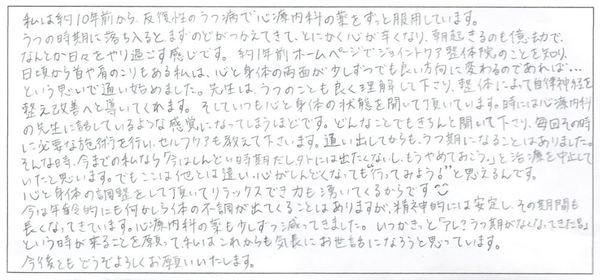 私は約10年前から、反復性のうつ病で心療内科の薬をずっと服用しています。
うつの時期に落ち入ると、まずのどがつかえてきて、とにかく心が辛くなり、朝起きるのも億劫で、
なんとか日々をやり過ごす感じです。約1年前ホームページでジョイントケア整体院のことを知り、
日頃から首や肩のこりもある私は、心と身体の両面が少しずつでも良い方向に変わるのであれば…
という思いで通い始めました。先生は、うつのことも良く理解して下さり、整体によって自律神経を
整え改善へと導いてくれます。そしていつも心と身体の状態を聞いて頂いています。時には心療内科
の先生に話しているような感覚になってしまうほどです。どんなことでもきちんと聞いて下さり、毎回その時
に必要な施術を行い、セルフケアも教えて下さいます。通い出してからも、うつ期になることはありました。
そんな時、今までの私なら「今はしんどい時期だし外には出たくないし、もうやめておこう。」と治療を中止して
いたと思います。でもここは他とは違い、心がしんどくなっても"行ってみよう"と思えるんです。
心と身体の調整をして頂いてリラックスでき力も湧いてくるからです
今は年齢的にも何かしら体の不調が出てくることはありますが、精神的には安定し、その期間も
長くなってきています。心療内科の薬も少しずつ減ってきました。いつかきっと「アレ？うつ期がなくなってきた💡」
という時が来ることを願って私は、これからも気長にお世話になろうと思っています。
今後ともどうぞよろしくお願いいたします。